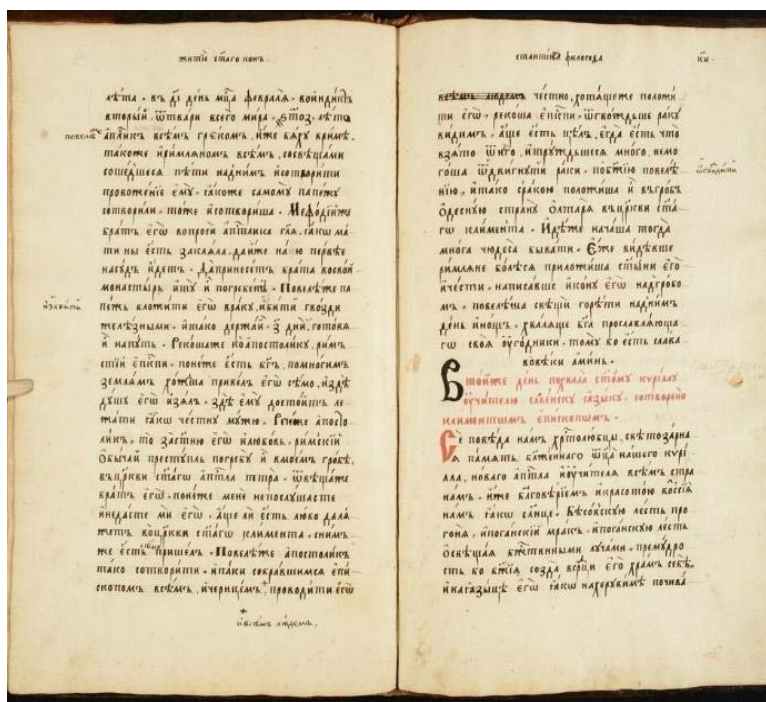 житїе ст҃аго кон
лѣта . въ д҃і день мц҃а февралѧ . во индиктъ
вторый . ѿ твари всего мира .
ап҃ликъ всѣмъ грѣкомъ , иже бѧху в римѣ .
повелѣ
такоже и римлѧномъ всѣмъ , со свѣщами
сошедшесѧ пѣти над нимъ и сотворити
провоженїе ему . ꙗкоже самому папежу
сотворили . тоже и сотвориша . Меѳодїй же
братъ єгѡ вопроси ап҃лика гл҃ѧ . ꙗкѡ ма
ти ны єсть заклѧла , да иже на ю первѣе
на судъ идетъ . да принесетъ брата во свой
монастырь и ту и погребетъ . Повелѣ же па
пежь вложити єгѡ в раку , и бити гвозди
желѣзными . и тако держа й з҃ дній , готовѧ
й на путь . Рекоша же ко апостолику , рим
стїи єп҃кпи . понеже єсть бг҃ъ , по многимъ
землѧмъ хожша привелъ єгѡ сѣмо , и здѣ
душу єгѡ изѧлъ . здѣ єму достоитъ ле
жати ꙗкѡ честну мужю . Рече же апосто
ликъ , то за ст҃ню єгѡ и любовь . римскїй
обычай преступль погребу й в моемъ гробѣ ,
въ цр҃кви ст҃агѡ ап҃тла петра . ѿвѣща же
братъ єгѡ . понеже мене не послушасте
и недасте ми єгѡ . аще ли єсть любо да лѧ
жетъ во цр҃кви ст҃агѡ климента . с нимъ
же єсть сѣмо пришелъ . Повелѣ же апостоликъ
тако сотворити . и паки собравшимсѧ єпи
скопомъ всѣмъ , и чернцемъ , проводити єгѡ
и всѣмъ людемъ ,
стѧнтина философа
к҃и
всѣмъ людемъ честно , хотѧщеже положи
ти єгѡ . рекоша єп҃кпи . ѿгвождьше раку
видимъ . аще єсть цѣлъ , єгда єсть что
взѧто ѿ него . и труждьшесѧ много , немо
гоша ѿдвигнути раки . по бж҃їю повелѣ
нїю . и тако с ракою положиша й въ гробъ
ѡдесную страну ѻлтарѧ въ цр҃кви ст҃а
гѡ климента . идѣже начаша тогда
многа чюдеса бывати . Єже видѣвше
римлѧне болѣ сѧ приложиша ст҃ыни єго
и чести . написавше икону єгѡ над гробо
мъ . повелѣша свѣщїи горѣти над нимъ
день и нощъ . хвалѧще бг҃а прославлѧюща
гѡ своѧ оугодники . тому бо єсть слава
во вѣки аминь .
Въ той же день похвала ст҃ому курілу
оучителю словѣнску ꙗзыку . сотворено
климентомъ єпископомъ .
Се повѣда намъ хр҃толюбцы , свѣтозарна
ѧ памѧть . бл҃женнаго ѿц҃а нашего курі
ла , новаго ап҃тла и оучителѧ всѣмъ стра
намъ . иже бл҃говѣрїемъ и красотою восїѧ
намъ ꙗкѡ слн҃це . Бѣсовскую лесть про
гонѧ , и поганскїй мракъ . и поганскую лесть
освѣщаѧ бжс҃твеными лучами . премудро
сть бо бж҃їѧ созда в срц҃и єго храмъ себѣ .
и на ꙗзыцѣ єгѡ ꙗкѡ на херувимѣ почива